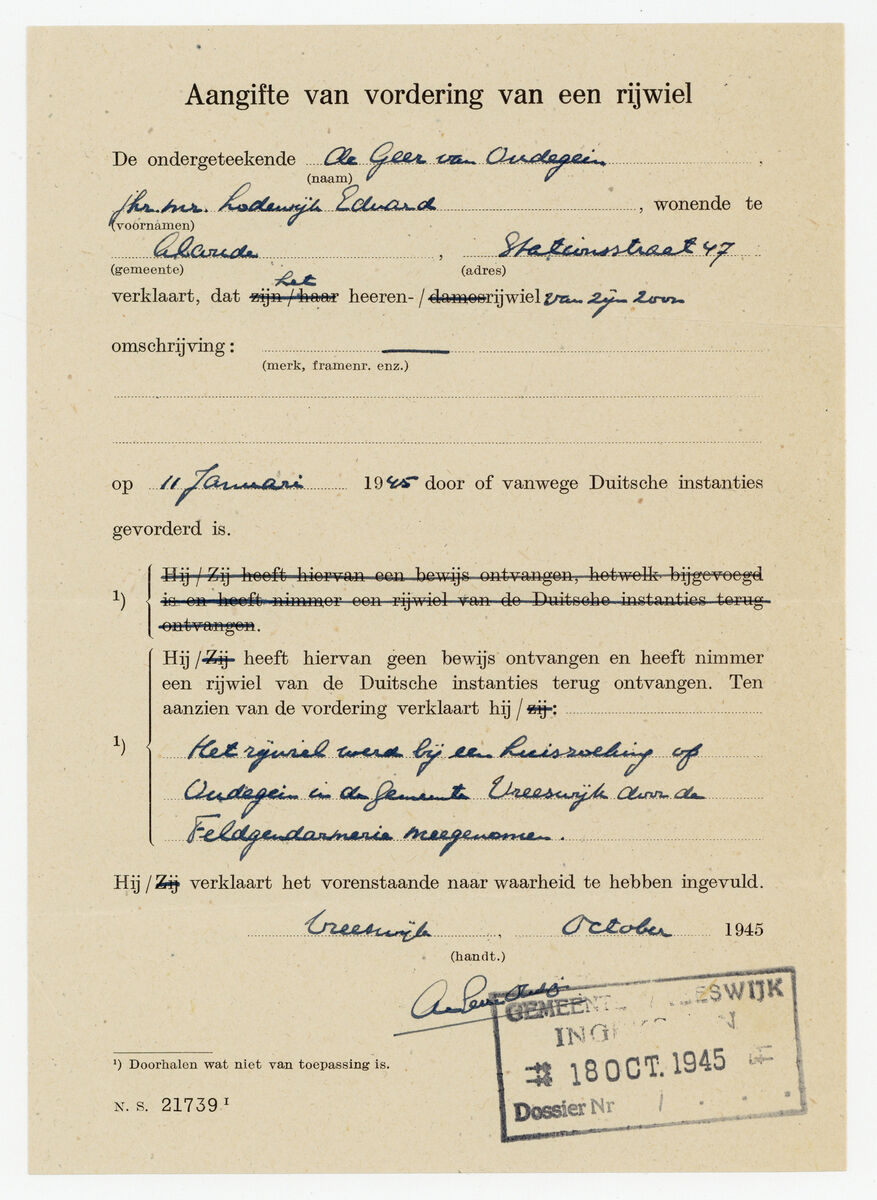 Aangifte van vordering van een rijwiel
De ondergeteekende de Geer van Oudegein,
(naam)
jhr. mr. Lodewijk Eduard, wonende te
(voornamen)
Abcoude, Stationsstraat 47
(gemeente) (adres)
het
verklaart, dat zijn/haar heeren-/damesrijwiel van zijn zoon
omschrijving: —
(merk, framenr. enz.)
op 11 Januari 1945 door of vanwege Duitsche instanties
gevorderd is.
Hij/Zij heeft hiervan een bewijs ontvangen, hetwelk bijgevoegd
1) is en heeft nimmer een rijwiel van de Duitsche instanties terug
ontvangen.
Hij/Zij heeft hiervan geen bewijs ontvangen en heeft nimmer
een rijwiel van de Duitsche instanties terug ontvangen. Ten
aanzien van de vordering verklaart hij/zij:
1) Het rijwiel werd bij een huiszoeking op
Oudegein in de gemeente Vreeswijk door de
Feldgendarmerie meegenomen.
Hij/Zij verklaart het vorenstaande naar waarheid te hebben ingevuld.
Vreeswijk, October 1945
(handt.)
GEMEENTE VREESWIJK
18 OCT. 1945
Dossier Nr
1) Doorhalen wat niet van toepassing is.
N. S. 21739 I